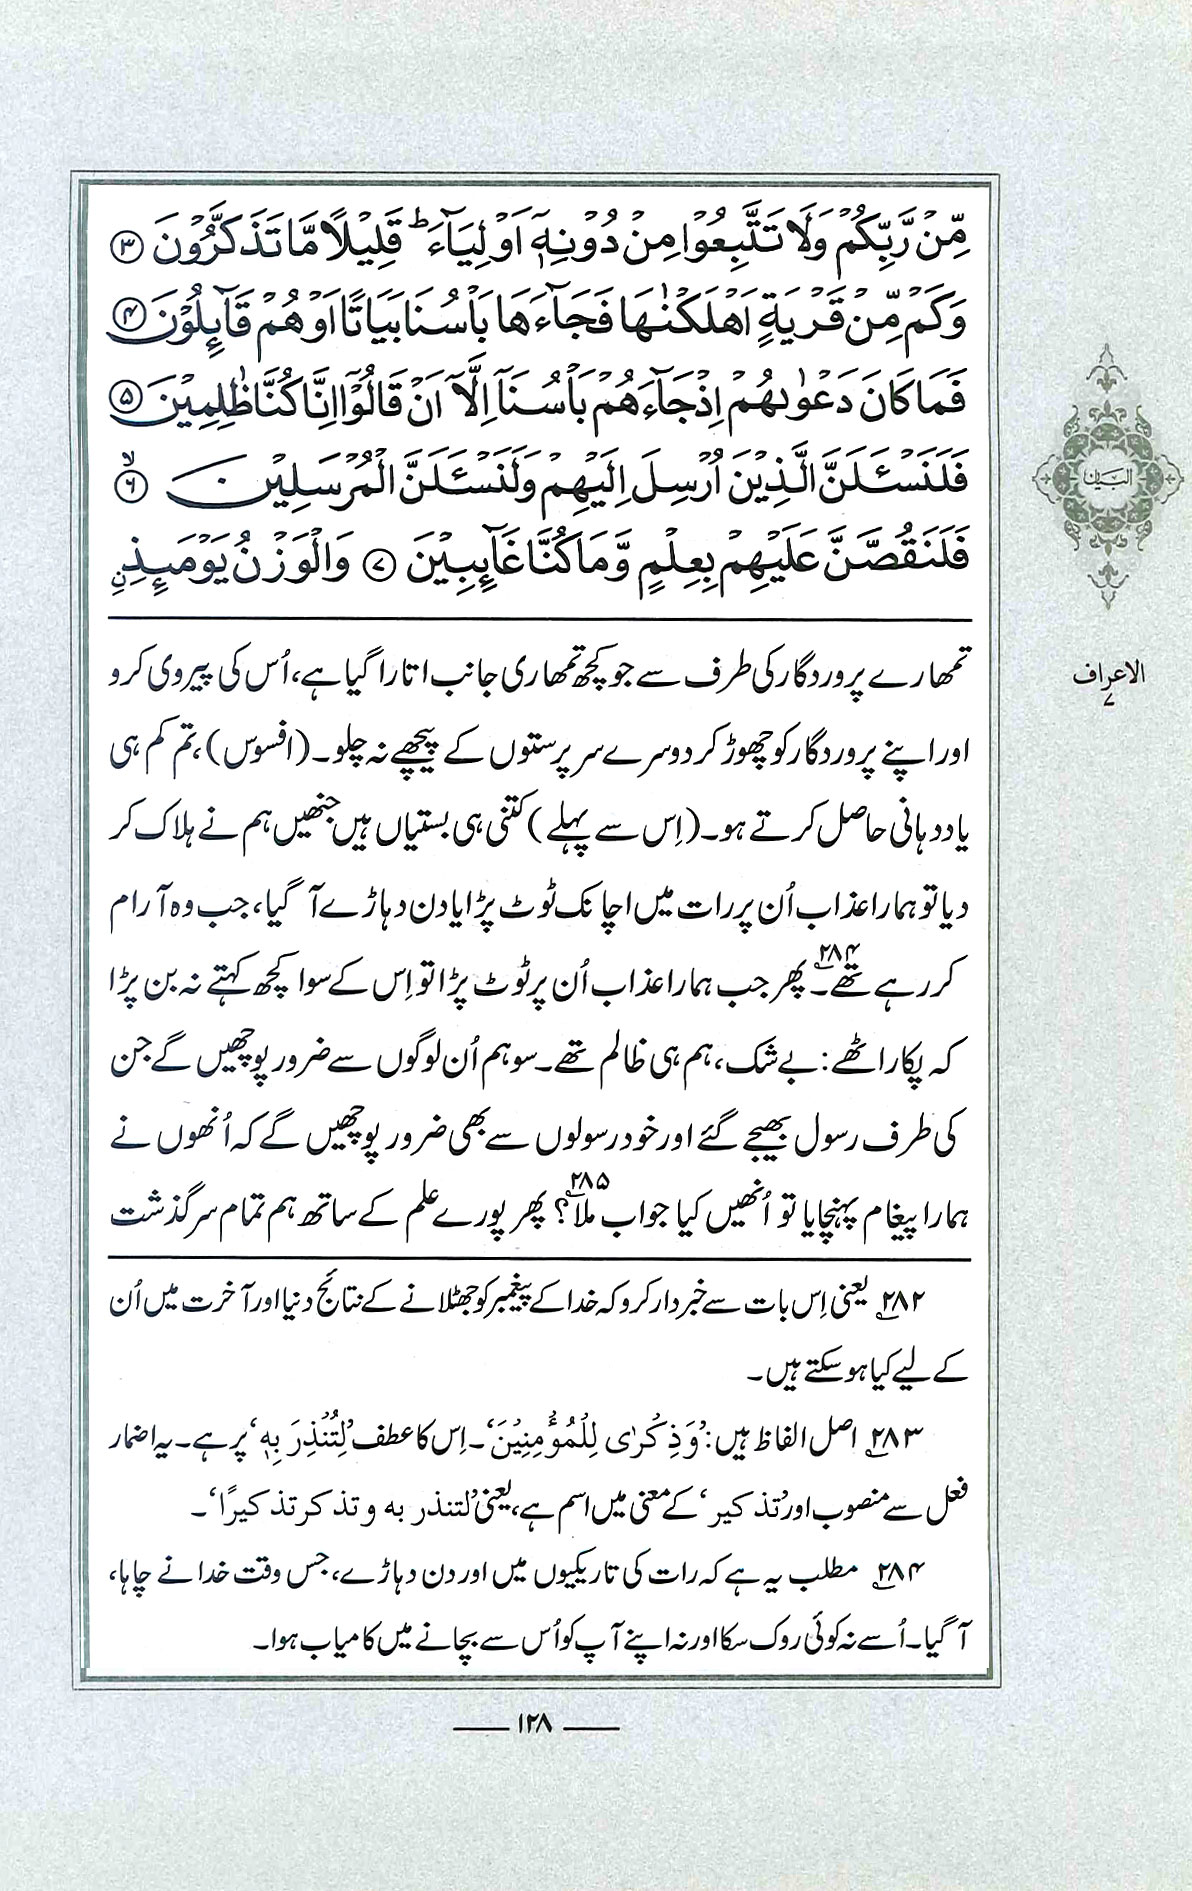 مِّنْ رَّبِّكُمْ وَلَا تَتَّبِعُوْا مِنْ دُوْنِهٖٓ اَوْلِيَآءَ ؕ قَلِيْلًا مَّا تَذَكَّرُوْنَ ﴿۳﴾
وَكَمْ مِّنْ قَرْيَةٍ اَهْلَكْنٰهَا فَجَآءَهَا بَاْسُنَا بَيَاتًا اَوْ هُمْ قَآئِلُوْنَ ﴿۴﴾
فَمَا كَانَ دَعْوٰىهُمْ اِذْ جَآءَهُمْ بَاْسُنَآ اِلَّآ اَنْ قَالُوْٓا اِنَّا كُنَّا ظٰلِمِيْنَ ﴿۵﴾
فَلَنَسْـَٔلَنَّ الَّذِيْنَ اُرْسِلَ اِلَيْهِمْ وَلَنَسْـَٔلَنَّ الْمُرْسَلِيْنَ ﴿۶﴾ ۙ
فَلَنَقُصَّنَّ عَلَيْهِمْ بِعِلْمٍ وَّمَا كُنَّا غَآئِبِيْنَ ﴿۷﴾ وَالْوَزْنُ يَوْمَئِذِ ۨ
تمھارے پروردگار کی طرف سے جو کچھ تمھاری جانب اتارا گیا ہے، اُس کی پیروی کرو
اور اپنے پروردگار کو چھوڑ کر دوسرے سرپرستوں کے پیچھے نہ چلو۔ (افسوس)، تم کم ہی
یاددہانی حاصل کرتے ہو۔ (اِس سے پہلے) کتنی ہی بستیاں ہیں جنھیں ہم نے ہلاک کر
دیا تو ہمارا عذاب اُن پر رات میں اچانک ٹوٹ پڑا یا دن دہاڑے آ گیا، جب وہ آرام
کر رہے تھے۔۲۸۴ پھر جب ہمارا عذاب اُن پر ٹوٹ پڑا تو اِس کے سوا کچھ کہتے نہ بن پڑا
کہ پکار اٹھے: بے شک، ہم ہی ظالم تھے۔ سو ہم اُن لوگوں سے ضرور پوچھیں گے جن
کی طرف رسول بھیجے گئے اور خود رسولوں سے بھی ضرور پوچھیں گے کہ اُنھوں نے
ہمارا پیغام پہنچایا تو اُنھیں کیا جواب ملا؟۲۸۵ پھر پورے علم کے ساتھ ہم تمام سرگذشت
۲۸۲ یعنی اِس بات سے خبردار کرو کہ خدا کے پیغمبر کو جھٹلانے کے نتائج دنیا اور آخرت میں اُن
کے لیے کیا ہو سکتے ہیں۔
۲۸۳ اصل الفاظ ہیں: ’وَذِكْرٰى لِلْمُؤْمِنِيْنَ‘۔ اِس کا عطف ’لِتُنْذِرَ بِهٖ‘ پر ہے۔ یہ اضمار
فعل سے منصوب اور ’تذکیر‘ کے معنی میں اسم ہے، یعنی ’لتنذر به و تذکر تذکیرًا‘۔
۲۸۴ مطلب یہ ہے کہ رات کی تاریکیوں میں اور دن دہاڑے، جس وقت خدا نے چاہا،
آ گیا۔ اُسے نہ کوئی روک سکا اور نہ اپنے آپ کو اُس سے بچانے میں کامیاب ہوا۔
۱۲۸
البیان
الاعراف
۷